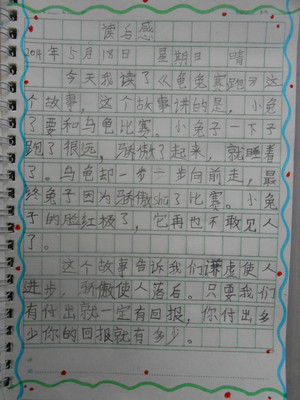 读与感
2014年5月18日 星期日 晴
今天我读了《龟兔赛跑》这
个故事，这个故事讲的是，小兔
子要和乌龟比赛。小兔子一下子
跑了很远，骄傲了起来，就睡着
了。乌龟却一步一步向前走，最
终兔子因为骄傲shū了比赛。小兔
子的脸红极了，它再也不敢见人
了。
这个故事告诉我们谦虚使人
进步，骄傲使人落后。只要我们
有付出就一定有回报，你付出多
少你的回报就有多少。